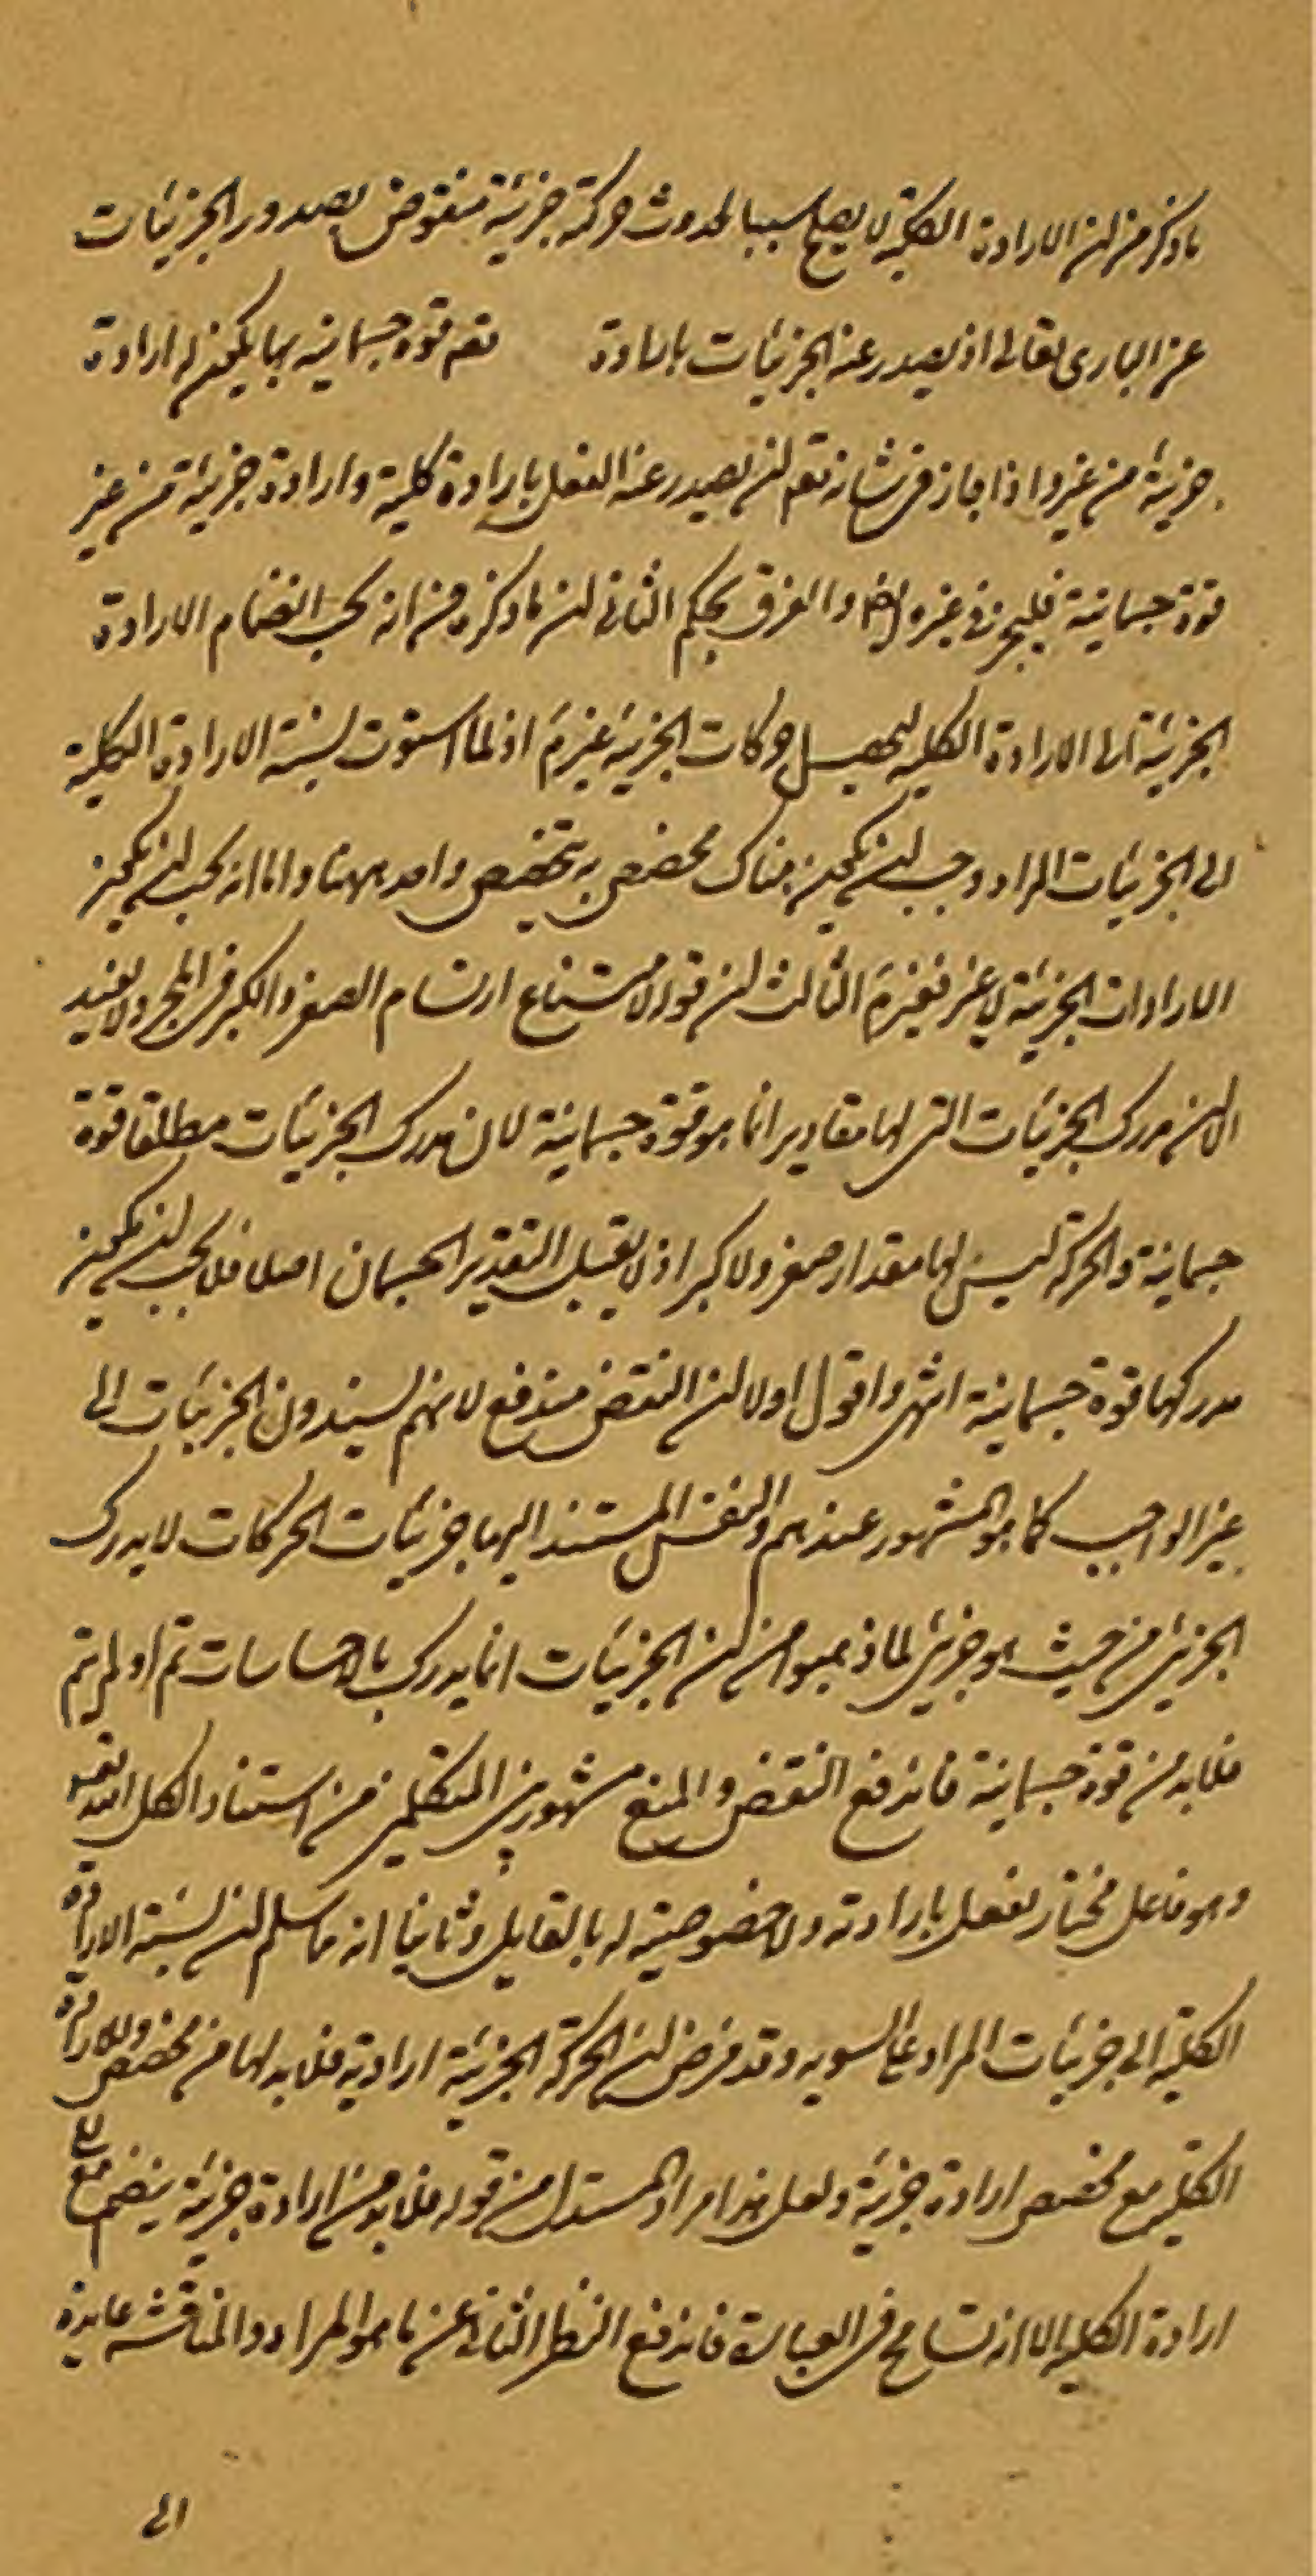 ما ذكر من ان الارادة الكلية لا يصلح سببا لحدوث حركة جزئية منقوض بصدور الجزئيات
عن البارى تعالى اذ يصدر عنه الجزئيات بارادة قوة جسمانية بها يكون له ارادة
جزئية من غير واذا جاز فى شانه تعالى ان يصدر عنه الفعل بارادة كلية وارادة جزئية من غير
قوة جسمانية فليجز فى غيره ايضا والفرق تحكم الثانى ان ما ذكره من انه يجب انضمام الارادة
الجزئية الى الارادة الكلية ليحصل حركات الجزئية غير تم اذ لما استوت نسبة الارادة الكلية
الى الجزئيات المراد وجب ان يكون هناك مخصص به يتخصص واحد منها واما انه يجب ان يكون
الارادات الجزئية لا غير فغير تم الثالث ان قوله لامتناع ارتسام الصغر والكبر فى المجرد لا يفيد
الا ان مدرك الجزئيات التى لها مقادير انما هو قوة جسمانية لا ان مدرك الجزئيات مطلقا قوة
جسمانية والحركة ليس لها مقدار صغر ولا كبر اذ لا يقبل التقدير الجسمان اصلا فلا يجب ان يكون
مدركها قوة جسمانية انتهى واقول اولا ان النقض مندفع لانهم لا يسندون الجزئيات الى
غير الواجب كما هو المشهور عندهم والنفس المستند اليها جزئيات الحركات لا يدرك
الجزئى من حيث هو جزئى لما ذهبوا من ان الجزئيات انما يدرك بالاحساسات تم او لم يتم
فلا بد من قوة جسمانية فاندفع النقض والمنع مشهور بين المتكلمين من استناد الكل اليه تعالى
وهو فاعل مختار يفعل بارادته ولا خصوصية له بالقابل وثانيا انه ما سلم ان نسبة الارادة
الكلية الى جزئيات المراد على السويه وقد فرض ان الحركة الجزئية ارادية فلا بد لها من مخصص والارادة
الكلية مع مخصص ارادة جزئية ولعل هذا مراد المستدل من قوله فلا بد من ارادة جزئية ينضم مع
ارادة الكلية الا انه تسامح فى العبارة فاندفع النظر الثانى عن ما هو المراد والمناقشة عايدة
الى